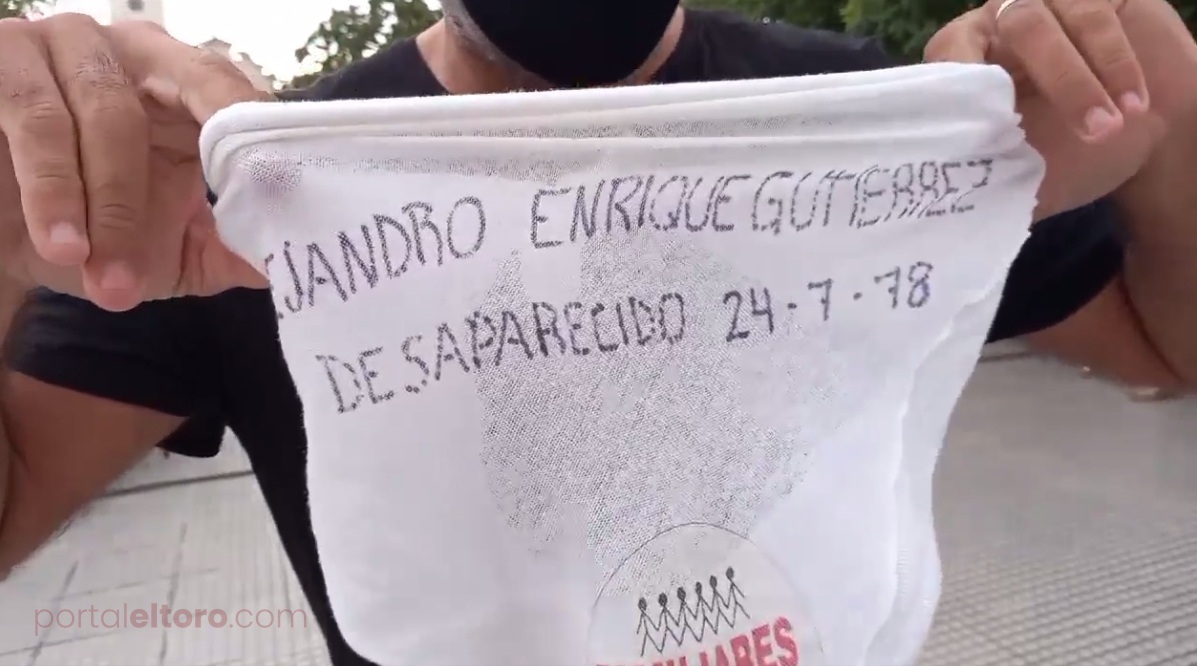 EJANDRO ENRIQUE GUTIERREZ
DESAPARECIDO 24-7-78
FAMILIARES
portaleltoro.com